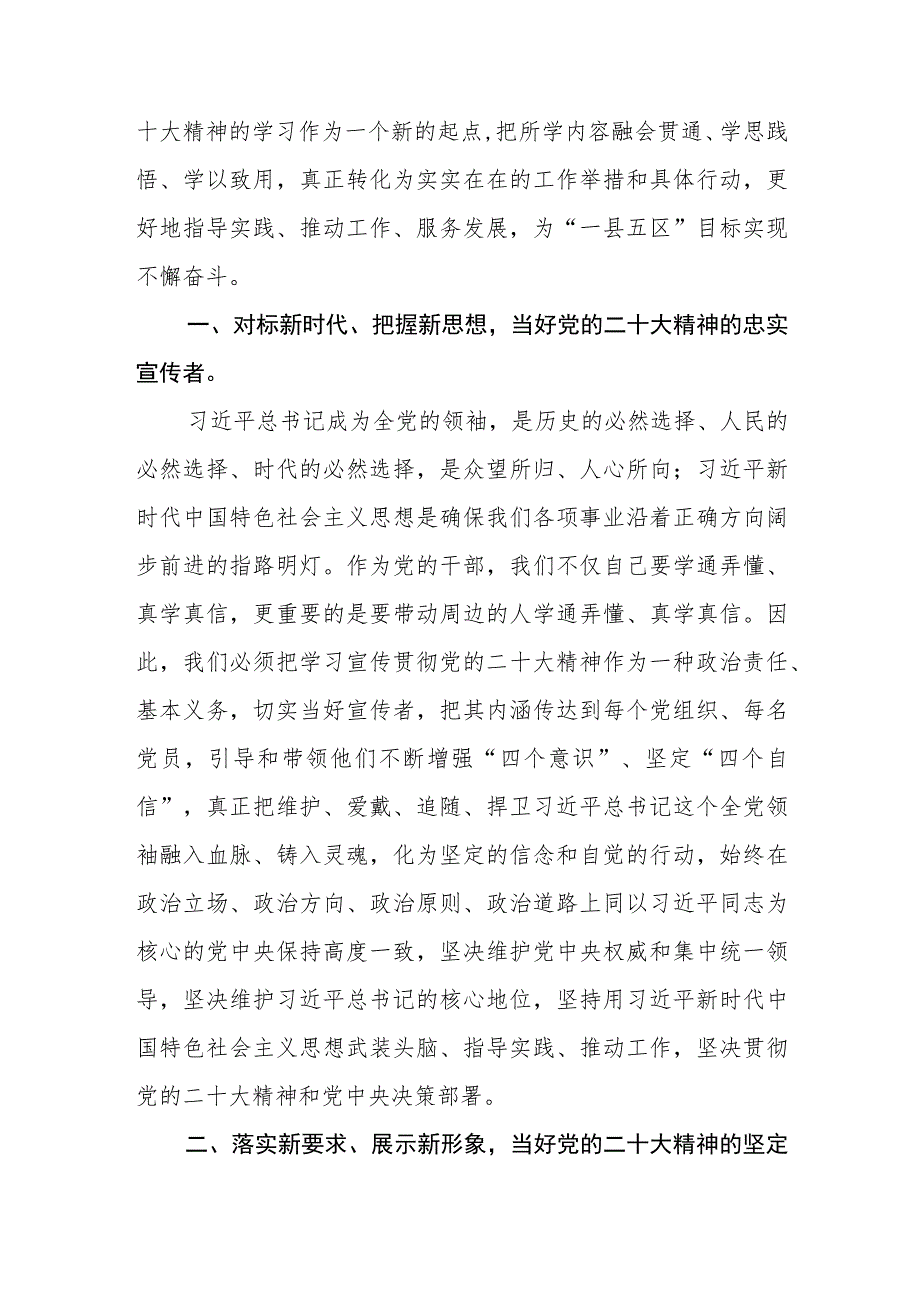 十大精神的学习作为一个新的起点,把所学内容融会贯通、学思践
悟、学以致用，真正转化为实实在在的工作举措和具体行动，更
好地指导实践、推动工作、服务发展，为“一县五区”目标实现
不懈奋斗。
一、对标新时代、把握新思想，当好党的二十大精神的忠实
宣传者。
习近平总书记成为全党的领袖，是历史的必然选择、人民的
必然选择、时代的必然选择，是众望所归、人心所向；习近平新
时代中国特色社会主义思想是确保我们各项事业沿着正确方向阔
步前进的指路明灯。作为党的干部，我们不仅自己要学通弄懂、
真学真信，更重要的是要带动周边的人学通弄懂、真学真信。因
此，我们必须把学习宣传贯彻党的二十大精神作为一种政治责任、
基本义务，切实当好宣传者，把其内涵传达到每个党组织、每名
党员，引导和带领他们不断增强“四个意识”、坚定“四个自
信”，真正把维护、爱戴、追随、捍卫习近平总书记这个全党领
袖融入血脉、铸入灵魂，化为坚定的信念和自觉的行动，始终在
政治立场、政治方向、政治原则、政治道路上同以习近平同志为
核心的党中央保持高度一致，坚决维护党中央权威和集中统一领
导，坚决维护习近平总书记的核心地位，坚持用习近平新时代中
国特色社会主义思想武装头脑、指导实践、推动工作，坚决贯彻
党的二十大精神和党中央决策部署。
二、落实新要求、展示新形象，当好党的二十大精神的坚定